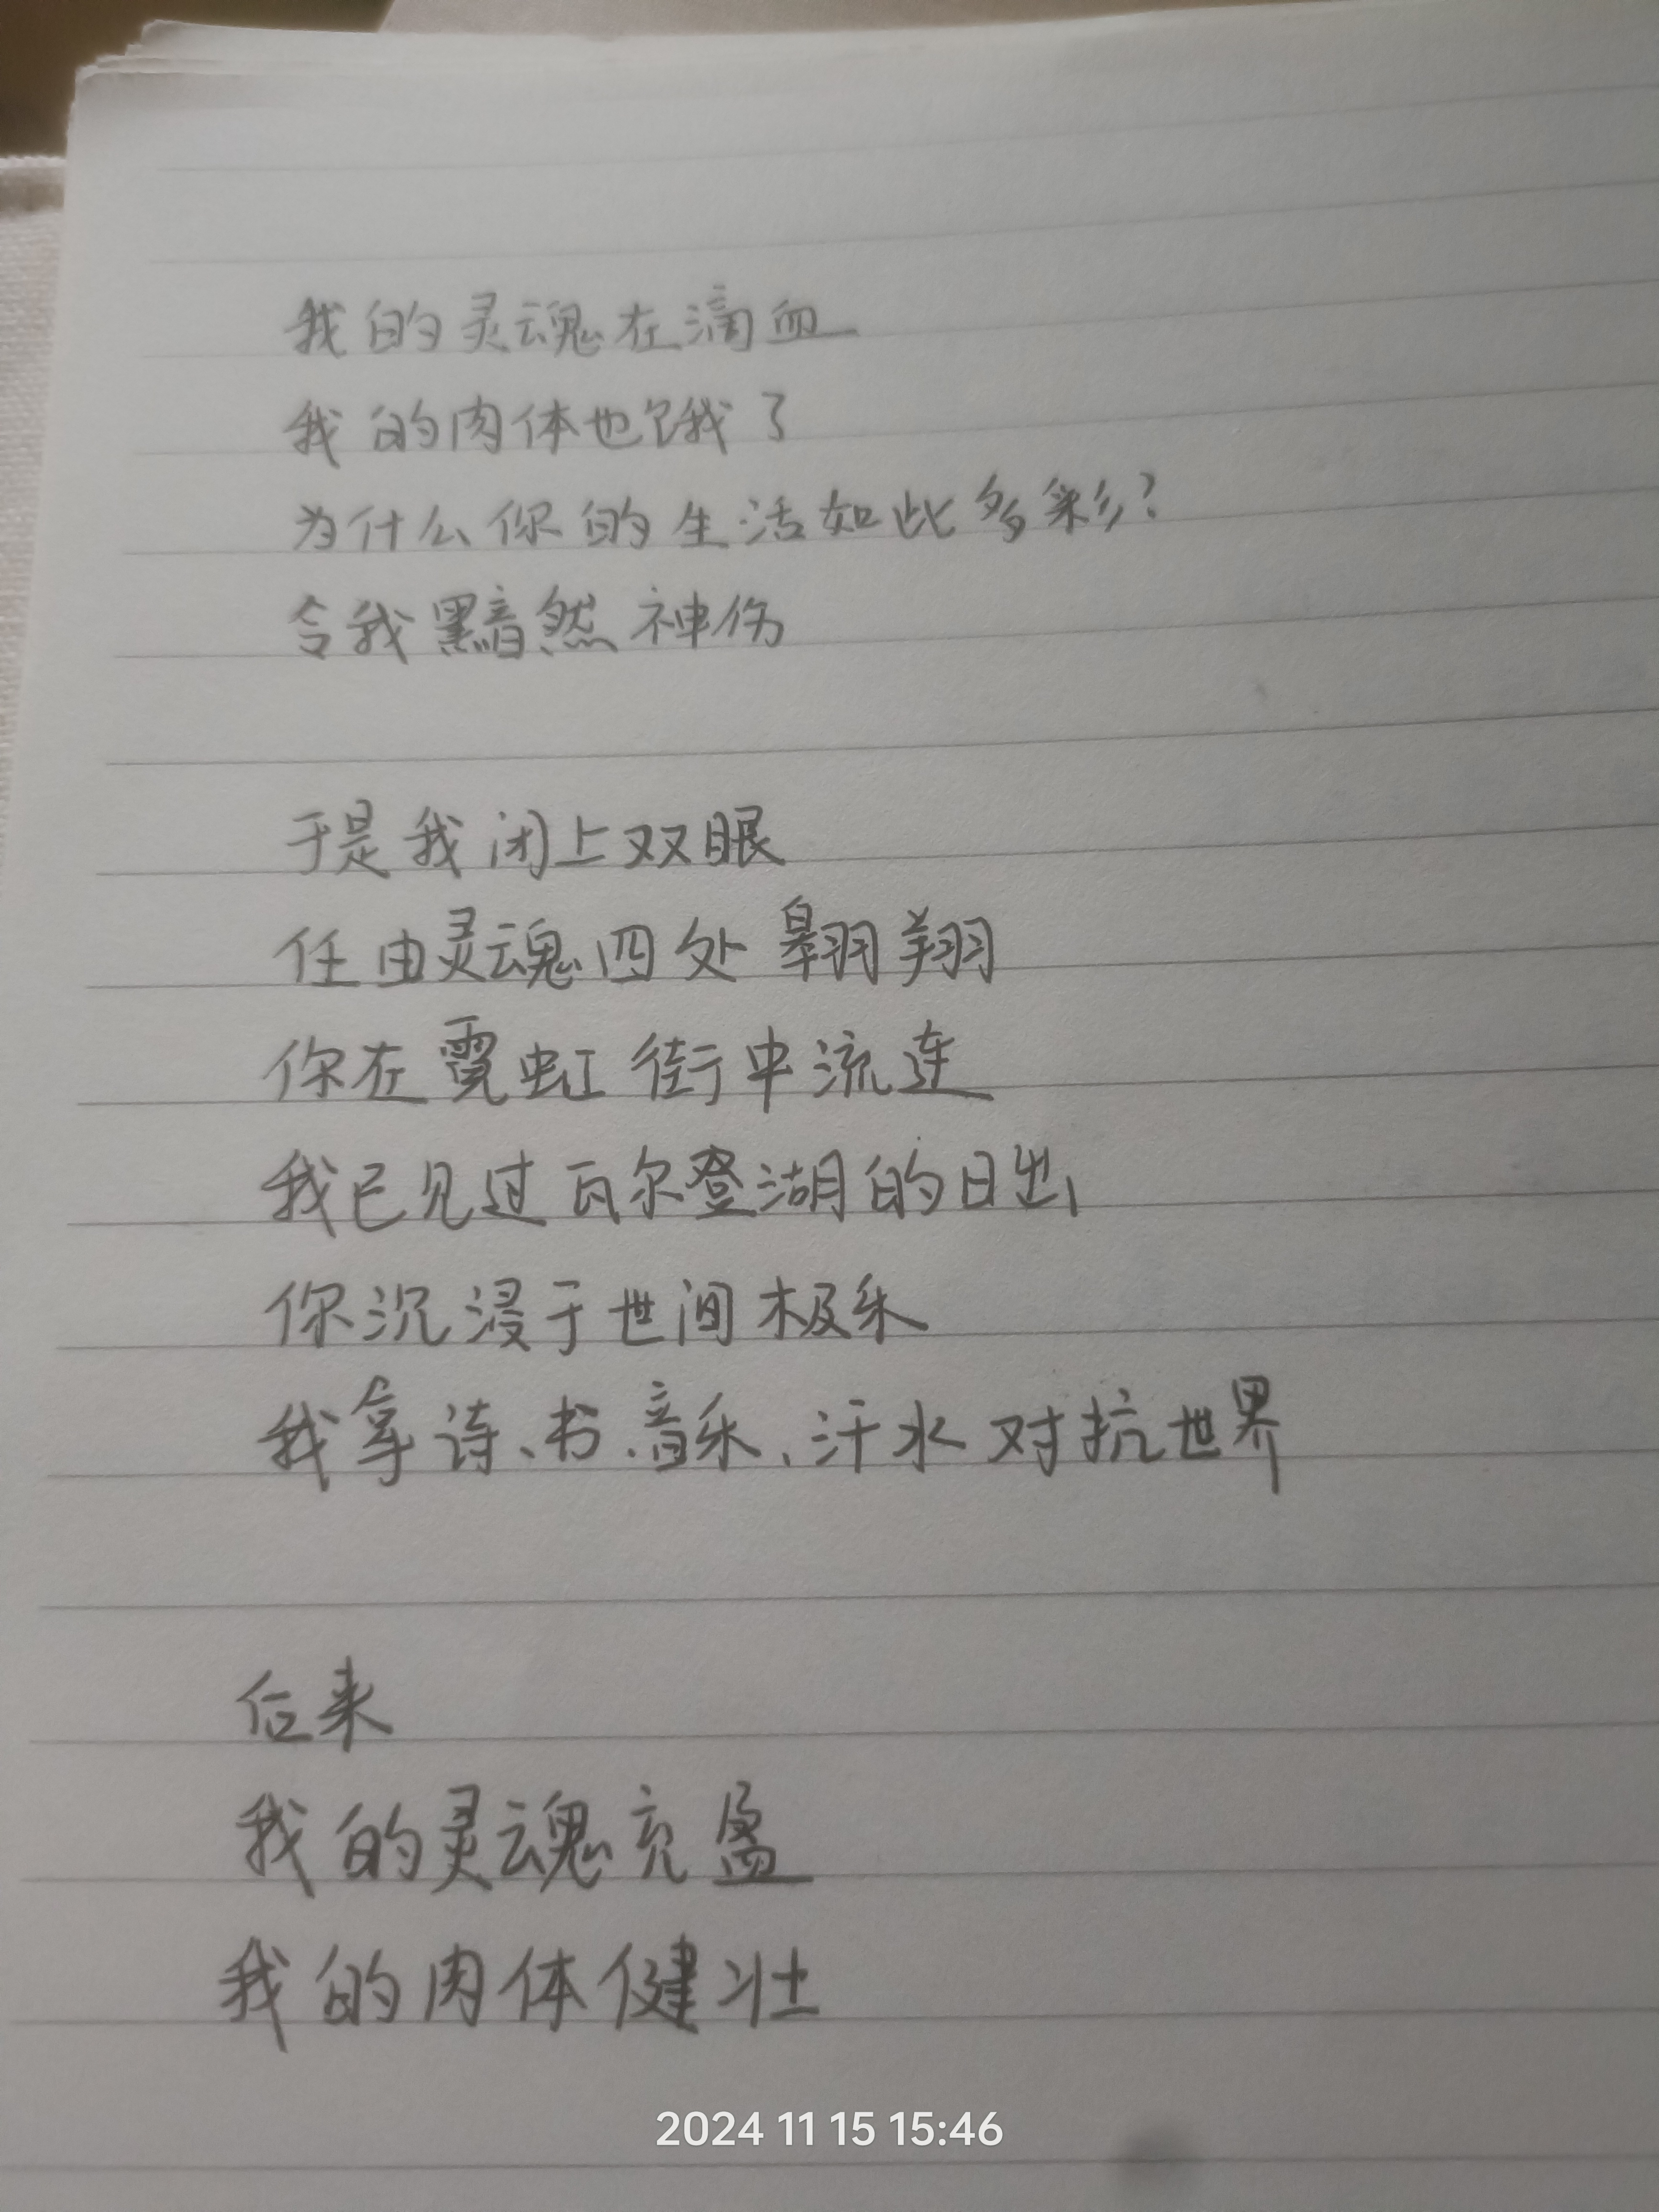 我的灵魂在滴血
我的肉体也饿了
为什么你的生活如此多彩?
令我黯然神伤
于是我闭上双眼
任由灵魂四处翱翔
你在霓虹街中流连
我已见过瓦尔登湖的日出
你沉浸于世间极乐
我拿诗、书、音乐、汗水对抗世界
后来
我的灵魂充盈
我的肉体健壮
2024 11 15 15:46